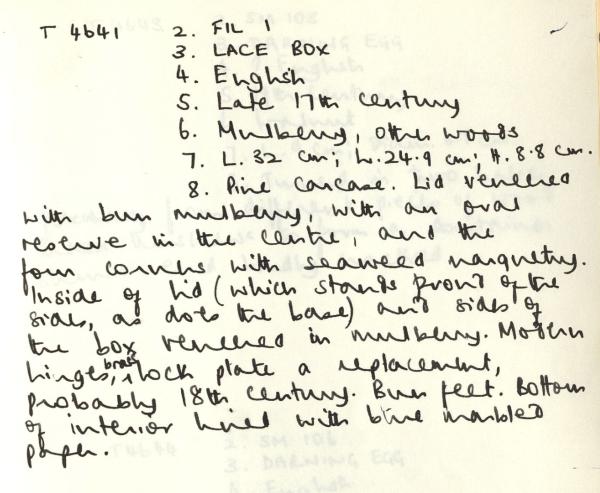 T 4641 2. FIL 1
3. LACE BOX
4. English
5. Late 17th century
6. Mulberry, other woods
7. L. 32 cm; W. 24.9 cm; H. 8.8 cm.
8. Pine carcase. Lid veneered
with burr mulberry, with an oval
reserve in the centre, and the
four corners with seaweed marquetry.
Inside of lid (which stands proud of the
sides, as does the base) and sides of
the box veneered in mulberry. Modern
hinges, brass lock plate a replacement,
probably 18th century. Bun feet. Bottom
of interior lined with blue marbled
paper.